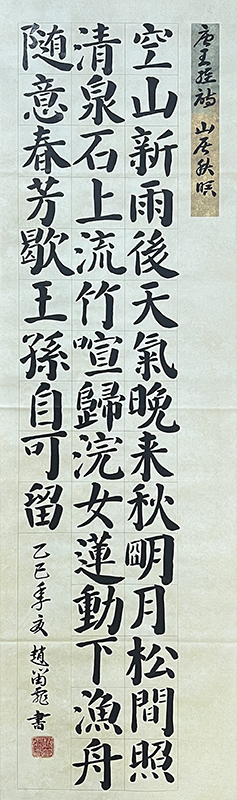 唐王維詩 山居秋暝
空山新雨後天氣晚来秋明月松間照
清泉石上流竹喧歸浣女蓮動下漁舟
随意春芳歇王孫自可留
乙巳年夏 趙 書